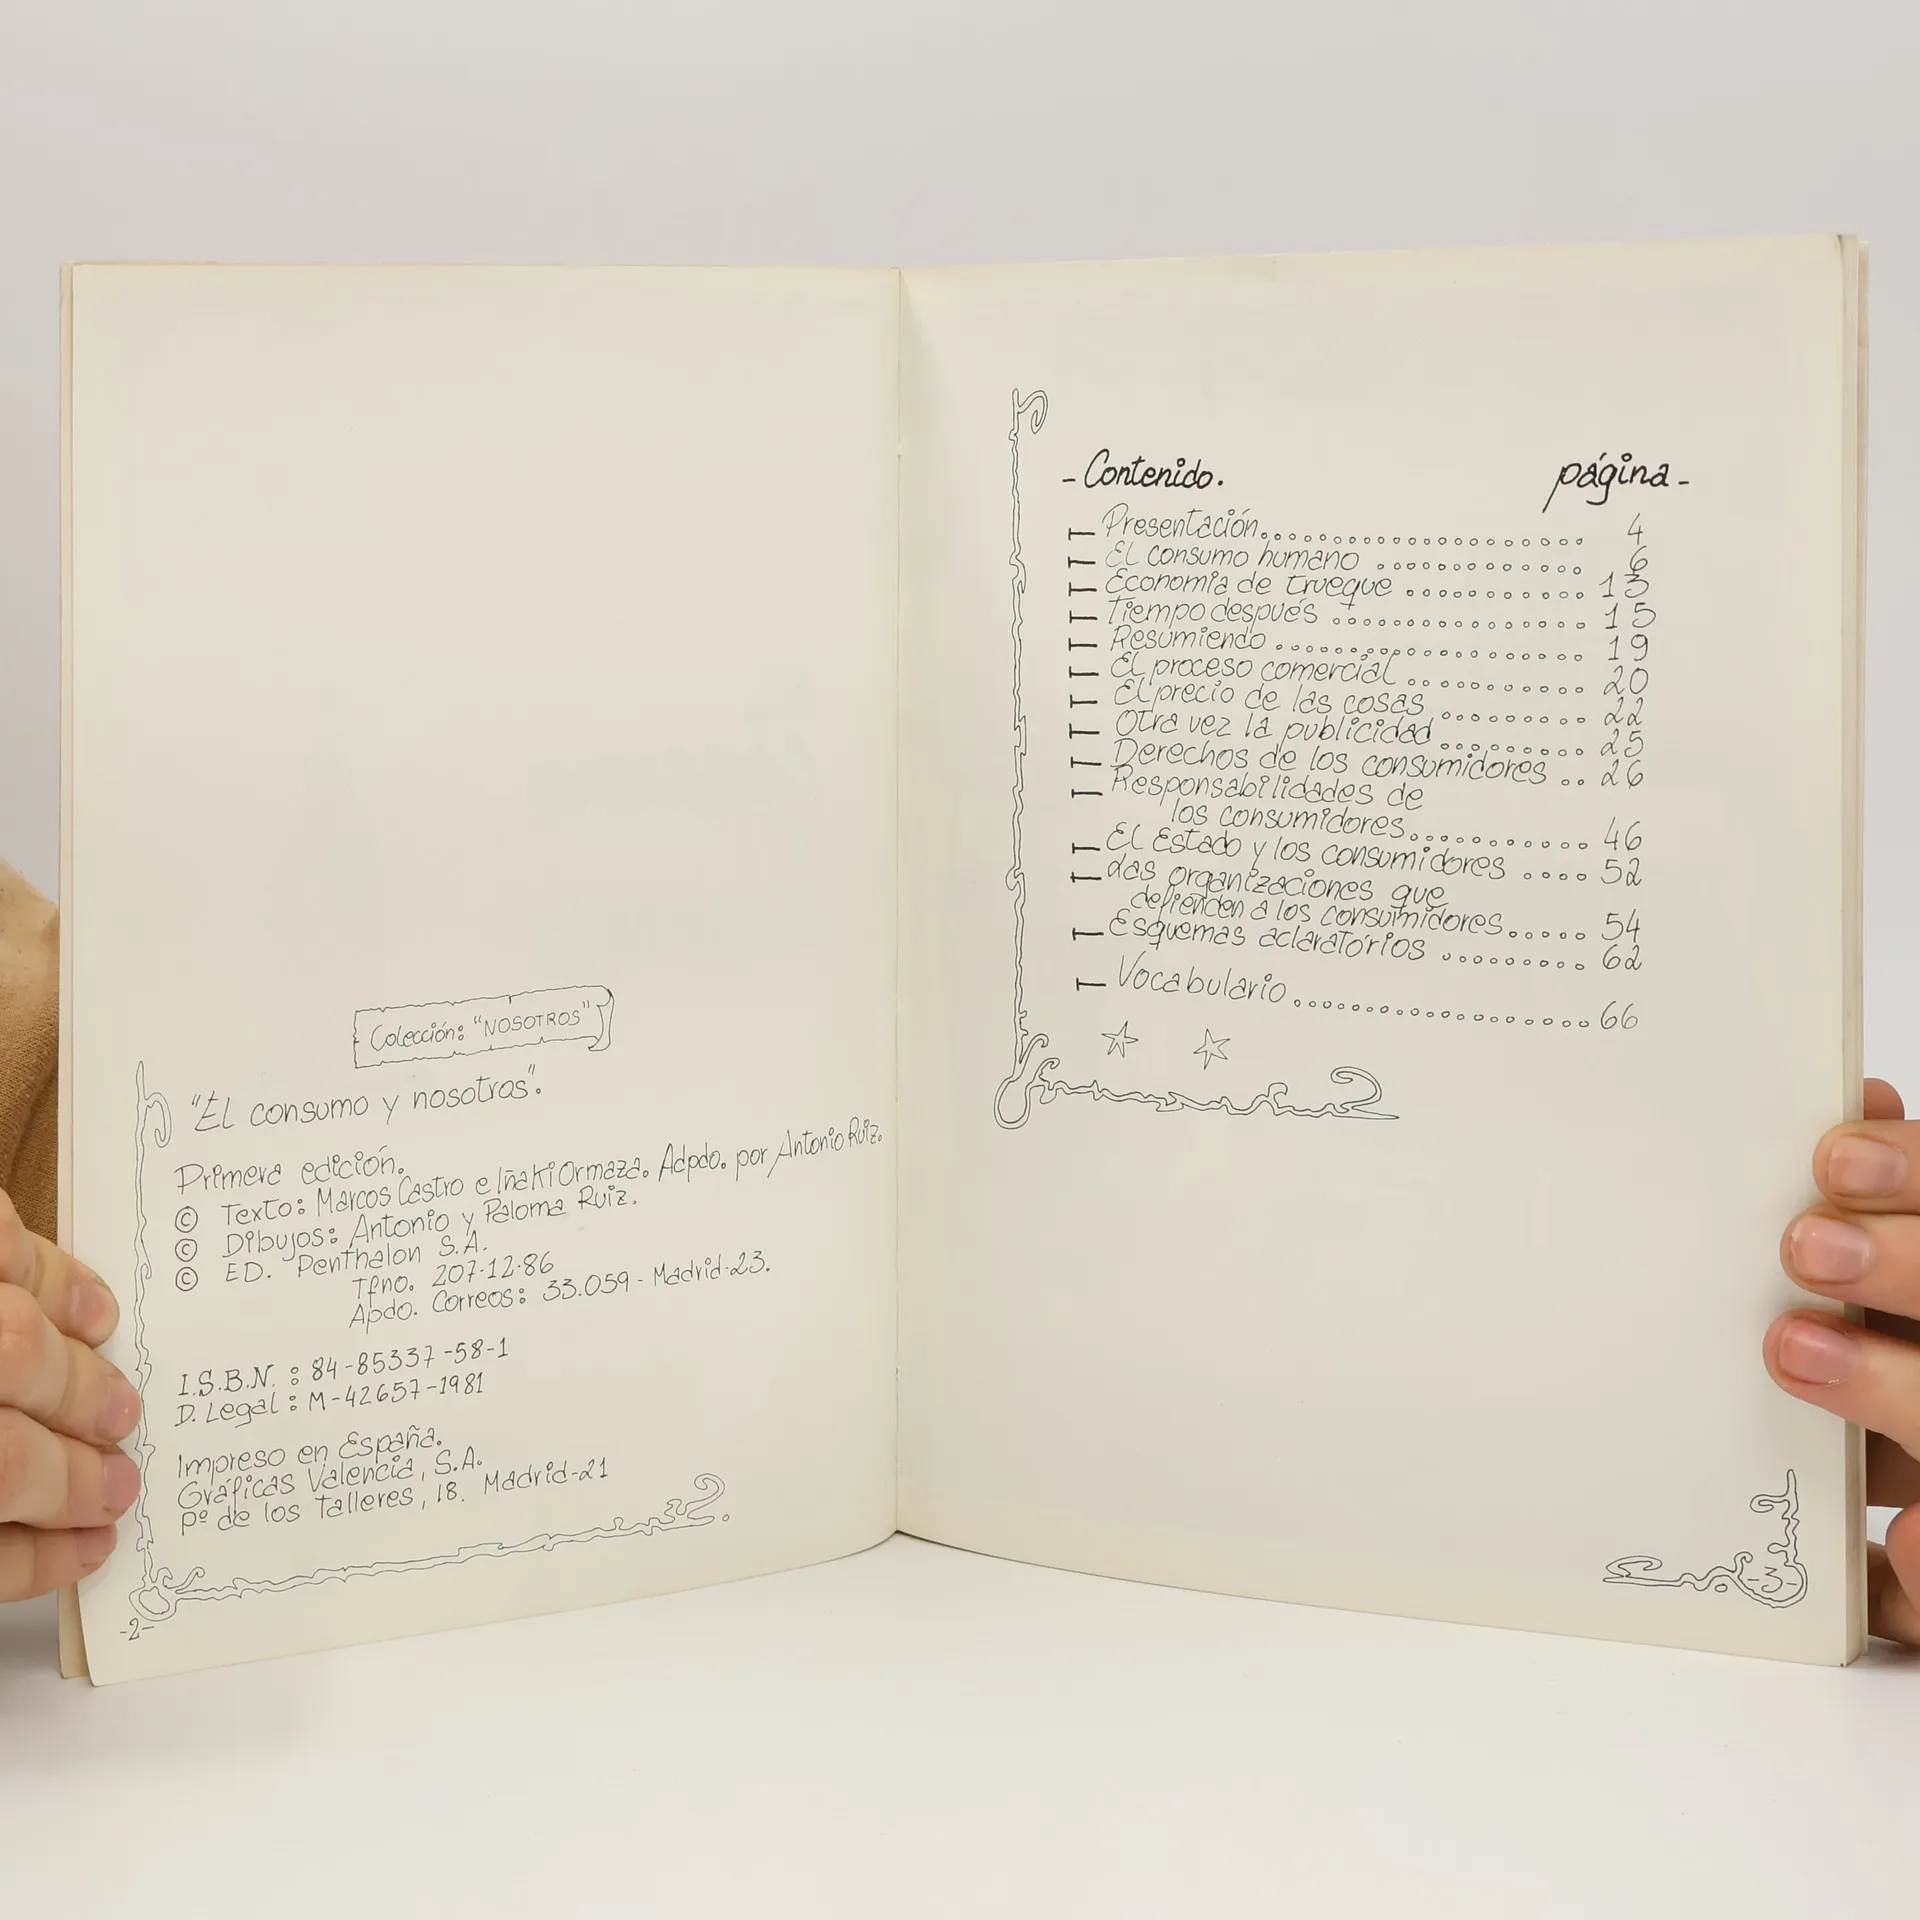 Colección: "NOSOTROS"
"El consumo y nosotros".
Primera edición.
© Texto: Marcos Castro e Iñaki Ormaza. Adpdo. por Antonio Ruiz.
© Dibujos: Antonio y Paloma Ruiz.
© ED. Penthalon S.A.
Tfno. 207-12-86
Apdo. Correos: 33.059 - Madrid-23.
I.S.B.N. : 84-85337-58-1
D. Legal : M-42657-1981
Impreso en España.
Gráficas Valencia, S.A.
Pº de los Talleres, 18. Madrid-21
-2-
- Contenido. página -
Presentación..................... 4
El consumo humano ............ 6
Economía de trueque ........... 13
Tiempo después ................ 15
Resumiendo .................... 19
El proceso comercial ........... 20
El precio de las cosas ......... 22
Otra vez la publicidad ......... 25
Derechos de los consumidores .. 26
Responsabilidades de
los consumidores............ 46
El Estado y los consumidores .... 52
Las organizaciones que
defienden a los consumidores..... 54
Esquemas aclaratorios ......... 62
Vocabulario................... 66
-3-